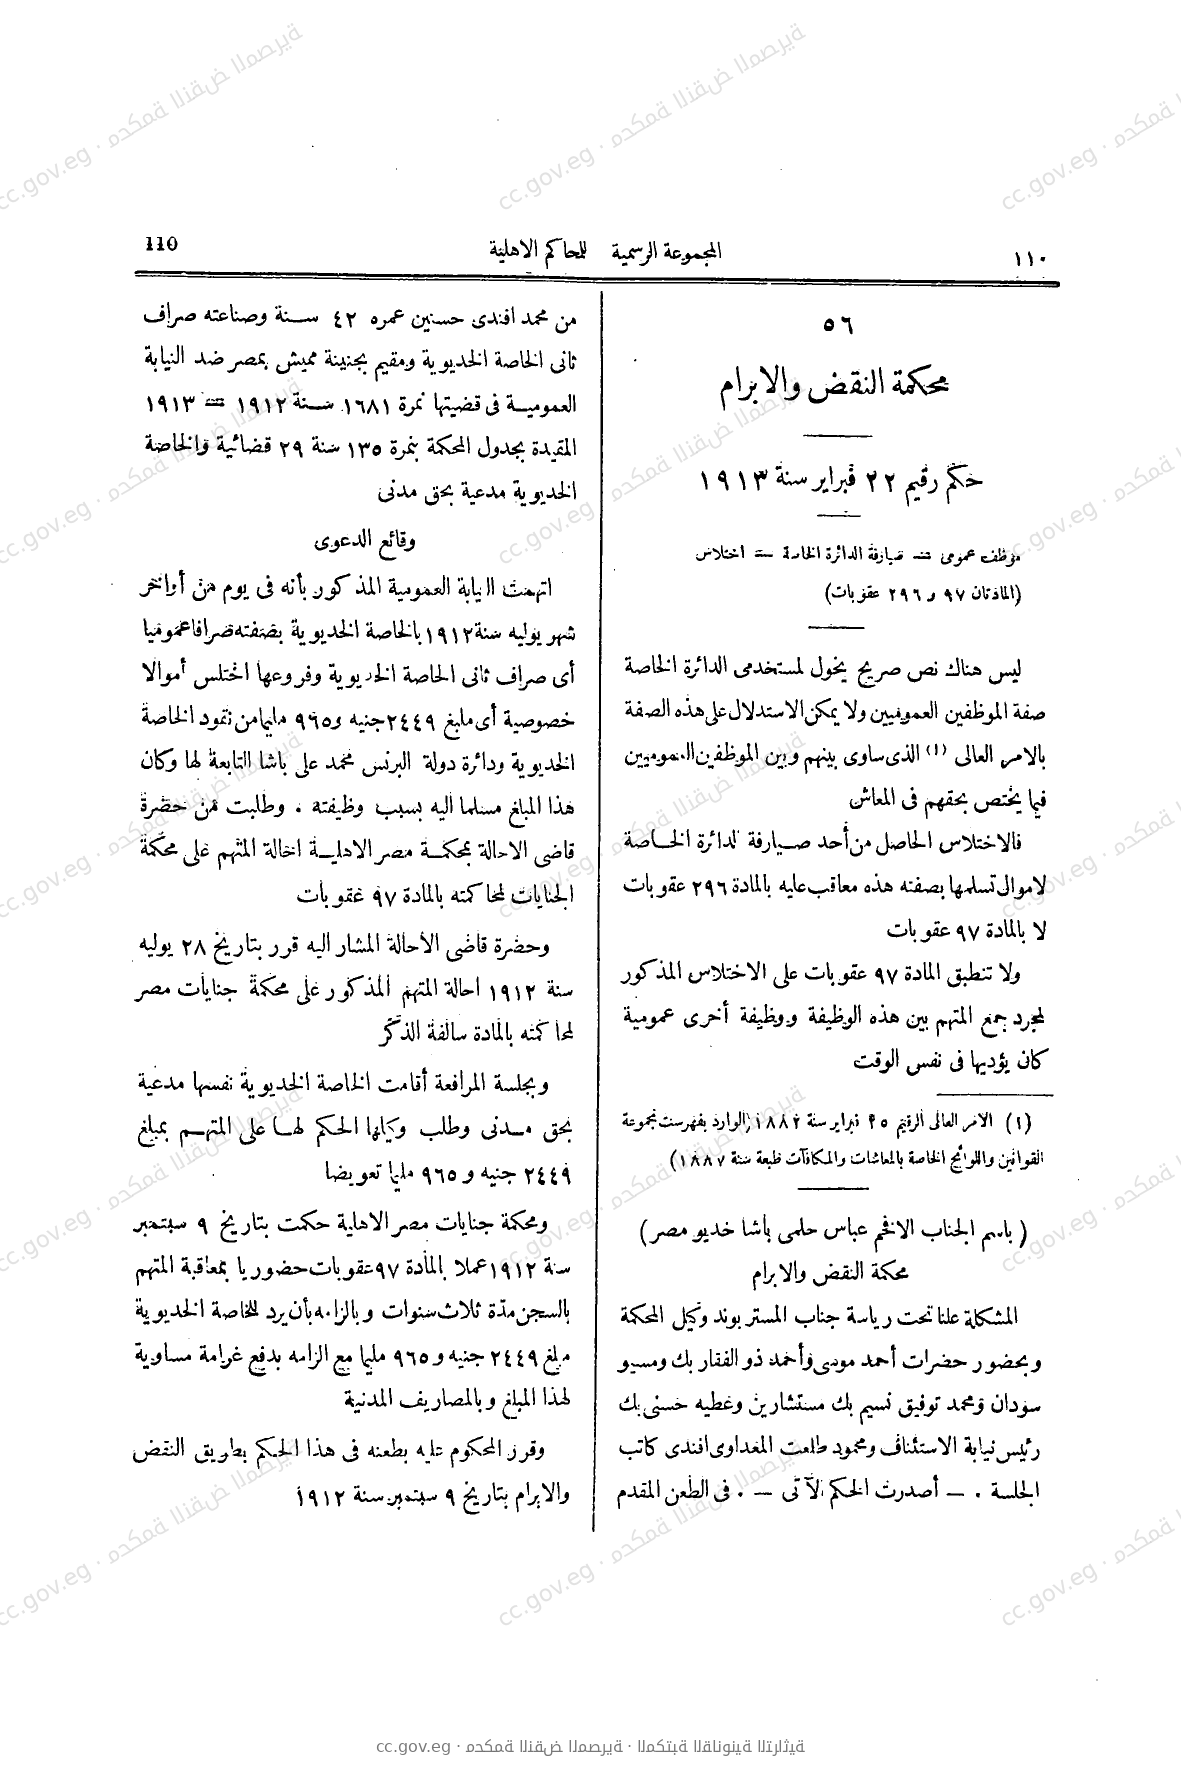 ١١٠
المجموعة الرسمية للمحاكم الاهلية
110
٥٦
محكمة النقض والابرام
حكم رقيم ٢٢ فبراير سنة ١٩١٣
موظف عمومى = صيارفة الدائرة الخاصة = اختلاس
(المادتان ٩٧ و ٢٩٦ عقوبات)
ليس هناك نص صريح يخول لمستخدمى الدائرة الخاصة
صفة الموظفين العموميين ولا يمكن الاستدلال على هذه الصفة
بالامر العالى (١) الذى ساوى بينهم وبين الموظفين العموميين
فيما يختص بحقهم فى المعاش
فالاختلاس الحاصل من أحد صيارفة الدائرة الخاصة
لاموال تسلمها بصفته هذه معاقب عليه بالمادة ٢٩٦ عقوبات
لا بالمادة ٩٧ عقوبات
ولا تنطبق المادة ٩٧ عقوبات على الاختلاس المذكور
لمجرد جمع المتهم بين هذه الوظيفة ووظيفة أخرى عمومية
كان يؤديها فى نفس الوقت
(١) الامر العالى الرقيم ٢٥ فبراير سنة ١٨٨٢ (الوارد بفهرست مجموعة
القوانين واللوائح الخاصة بالمعاشات والمكافآت طبعة سنة ١٨٨٧)
( باسم الجناب الافخم عباس حلمى باشا خديو مصر )
محكمة النقض والابرام
المشكلة علنا تحت رياسة جناب المستر بوند وكيل المحكمة
وبحضور حضرات أحمد موسى وأحمد ذو الفقار بك ومسيو
سودان ومحمد توفيق نسيم بك مستشارين وعطيه حسنى بك
رئيس نيابة الاستئناف ومحمود طلعت المغداوى افندى كاتب
الجلسة . — أصدرت الحكم الآتى — . فى الطعن المقدم
من محمد افندى حسنين عمره ٤٢ سنة وصناعته صراف
ثانى الخاصة الخديوية ومقيم بجنينة مميش بمصر ضد النيابة
العمومية فى قضيتها نمرة ١٦٨١ سنة ١٩١٢ = ١٩١٣
المقيدة بجدول المحكمة بنمرة ١٣٥ سنة ٢٩ قضائية والخاصة
الخديوية مدعية بحق مدنى
وقائع الدعوى
اتهمت النيابة العمومية المذكور بأنه فى يوم من أواخر
شهر يوليه سنة ١٩١٢ بالخاصة الخديوية بصفته صرافا عموميا
أى صراف ثانى الخاصة الخديوية وفروعها اختلس أموالا
خصوصية أى مبلغ ٢٤٤٩ جنيه و٩٦٥ مليما من نقود الخاصة
الخديوية ودائرة دولة البرنس محمد على باشا التابعة لها وكان
هذا المبلغ مسلما اليه بسبب وظيفته . وطلبت من حضرة
قاضى الاحالة بمحكمة مصر الاهلية احالة المتهم على محكمة
الجنايات لمحاكمته بالمادة ٩٧ عقوبات
وحضرة قاضى الاحالة المشار اليه قرر بتاريخ ٢٨ يوليه
سنة ١٩١٢ احالة المتهم المذكور على محكمة جنايات مصر
لمحاكمته بالمادة سالفة الذكر
وبجلسة المرافعة أقامت الخاصة الخديوية نفسها مدعية
بحق مدنى وطلب وكيلها الحكم لها على المتهم بمبلغ
٢٤٤٩ جنيه و ٩٦٥ مليما تعويضا
ومحكمة جنايات مصر الاهلية حكمت بتاريخ ٩ سبتمبر
سنة ١٩١٢ عملا بالمادة ٩٧ عقوبات حضوريا بمعاقبة المتهم
بالسجن مدة ثلاث سنوات وبالزامه بأن يرد للخاصة الخديوية
مبلغ ٢٤٤٩ جنيه و ٩٦٥ مليما مع الزامه بدفع غرامة مساوية
لهذا المبلغ وبالمصاريف المدنية
وقرر المحكوم عليه بطعنه فى هذا الحكم بطريق النقض
والابرام بتاريخ ٩ سبتمبر سنة ١٩١٢
cc.gov.eg · محكمة النقض المصرية · المكتبة القانونية التراثية